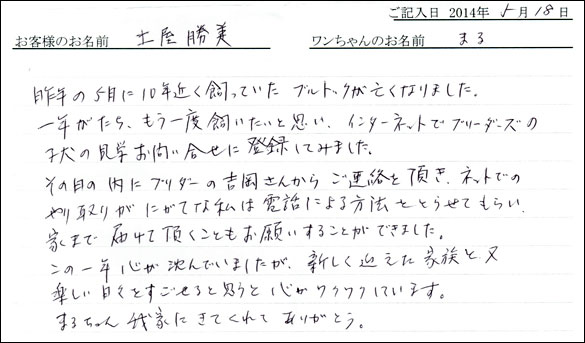 ご記入日 2014年 5月18日
お客様のお名前 土屋勝美 ワンちゃんのお名前 まる
昨年の5月に10年近く飼っていた ブルドックが亡くなりました。
一年がたち、もう一度飼いたいと思い、インターネットでブリーダーズの
子犬の見学お問い合せに登録してみました。
その日の内にブリダーの吉岡さんからご連絡を頂き、ネットでの
やり取りがにがてな私は電話による方法をとらせてもらい、
家まで届けて頂くこともお願いすることができました。
この一年心が沈んでいましたが、新しく迎えた家族と又
楽しい日々をすごせると思うと心がワクワクしています。
まるちゃん我家にきてくれてありがとう。